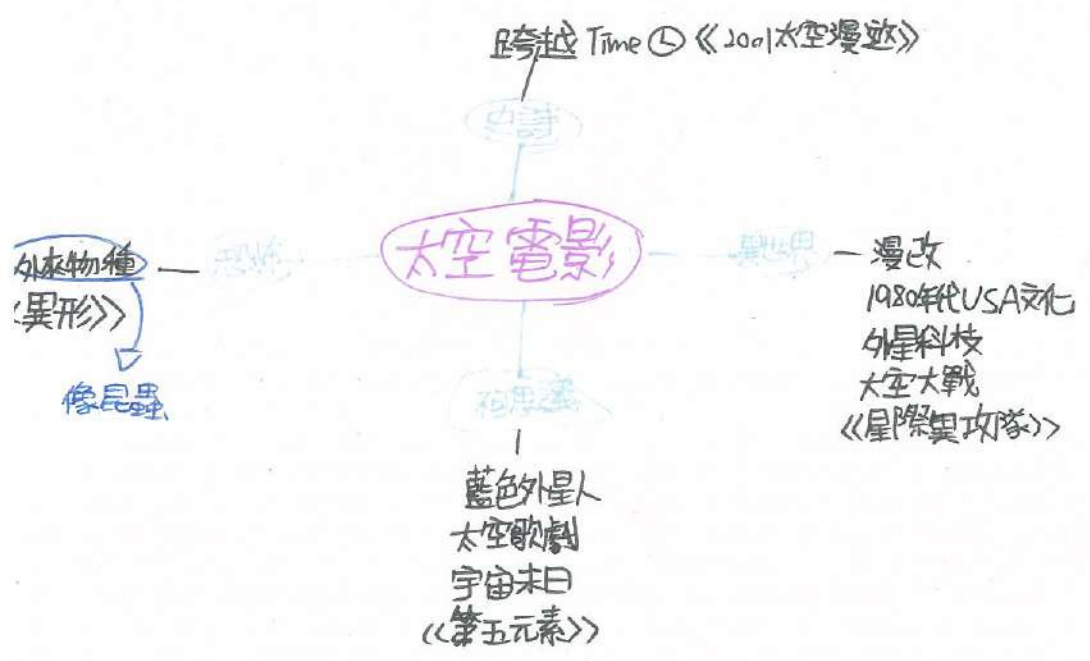 跨越 Time 《2001太空漫遊》
史詩
太空電影
恐怖
外來物種
《異形》》
像昆蟲
異世界
漫改
1980年代USA文化
外星科技
太空大戰
《星際異攻隊》
藍色外星人
太空歌劇
宇宙末日
《第五元素》